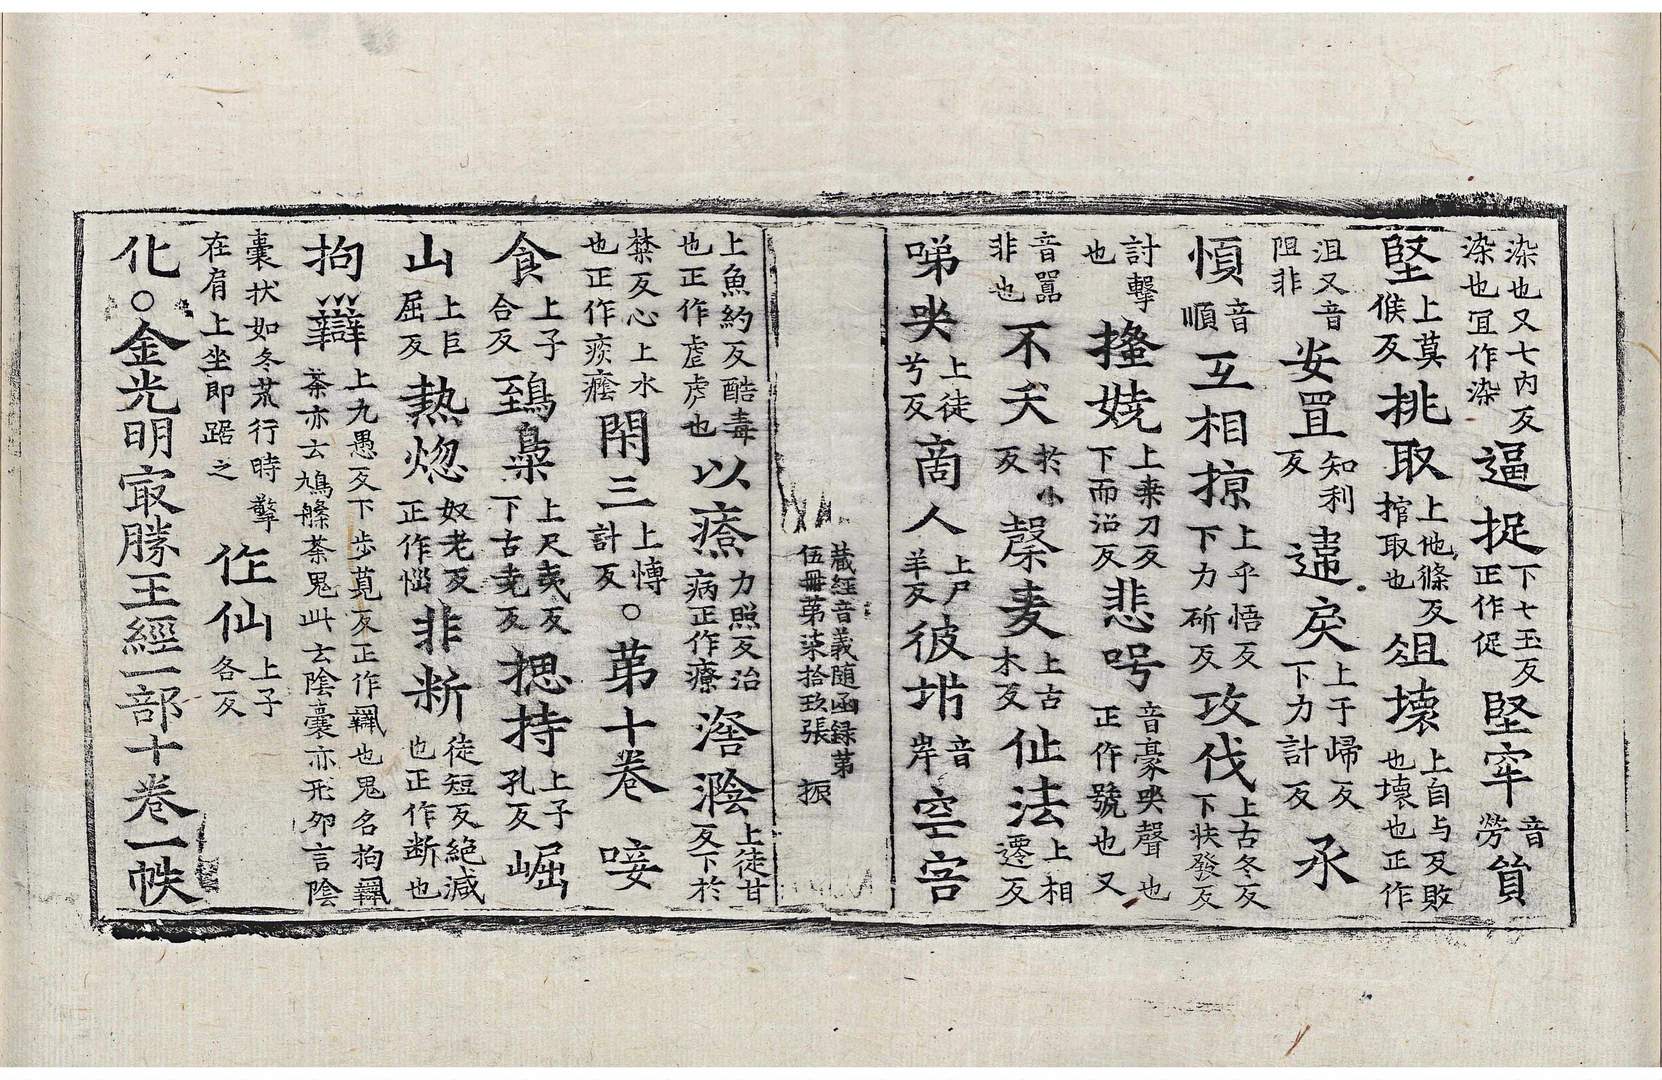 染也又七内反染也冝作染 逼捉下七玉反正作促 堅牢音勞 負
堅上莫侯反 挑取上他條反捾取也 俎壞上自与反敗也壞也正作
沮又音阻非 安置知利反 違戾上于歸反下力計反 承
愩音順 互相掠上乎悟反下力斫反 攻伐上古冬反下扶發反
討擊也 搔嬈上来刀反下而沼反 悲呺音豪哭聲也正作號也又
音嚻非也 不夭於小反 䅽麦上古木反 仙法上相遷反
啼哭上徒兮反 商人上尸羊反 彼㘸音岸 空害
藏經音義随函録第伍冊第柒拾玖張 振
上魚約反酷毒也正作虐虐也 以㾾力照反治病正作療 澘㵝上徒甘反下於
禁反心上水也正作痰癊 閑三上愽計反。第十卷 唼
食上子合反 鵄梟上尺夷反下古尭反 揌持上子孔反 崛
山上巨屈反 熱㷡奴老反正作惱 非断徒短反絶滅也正作断也
拘辯上九愚反下步莧反正作辦也鬼名拘辦茶亦云鳩槃茶鬼此云陰囊亦形夘言陰
囊状如冬荒行時擎在肩上坐即踞之 作仙上子各反
化。金光明冣勝王經一部十卷一帙